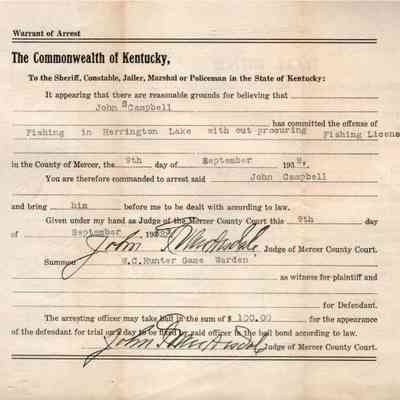 Warrant of Arrest
The Commonwealth of Kentucky,
To the Sheriff, Constable, Jailer, Marshal or Policeman in the State of Kentucky:
It appearing that there are reasonable grounds for believing that
John Campbell
has committed the offense of
Fishing in Herrington Lake with out procuring Fishing Licens
in the County of Mercer, the 9th day of September 193
You are therefore commanded to arrest said John Campbell
and bring him before me to be dealt with according to law.
Given under my hand as Judge of the Mercer County Court this 9th day
of September 193
John Judge of Mercer County Court.
Summon W.C.Hunter Game Warden
as witness for plaintiff and
for Defendant.
The arresting officer may take bail in the sum of $ 100.00 for the appearance
of the defendant for trial on a day to be fixed by said officer in the bail bond according to law.
John Judge of Mercer County Court.